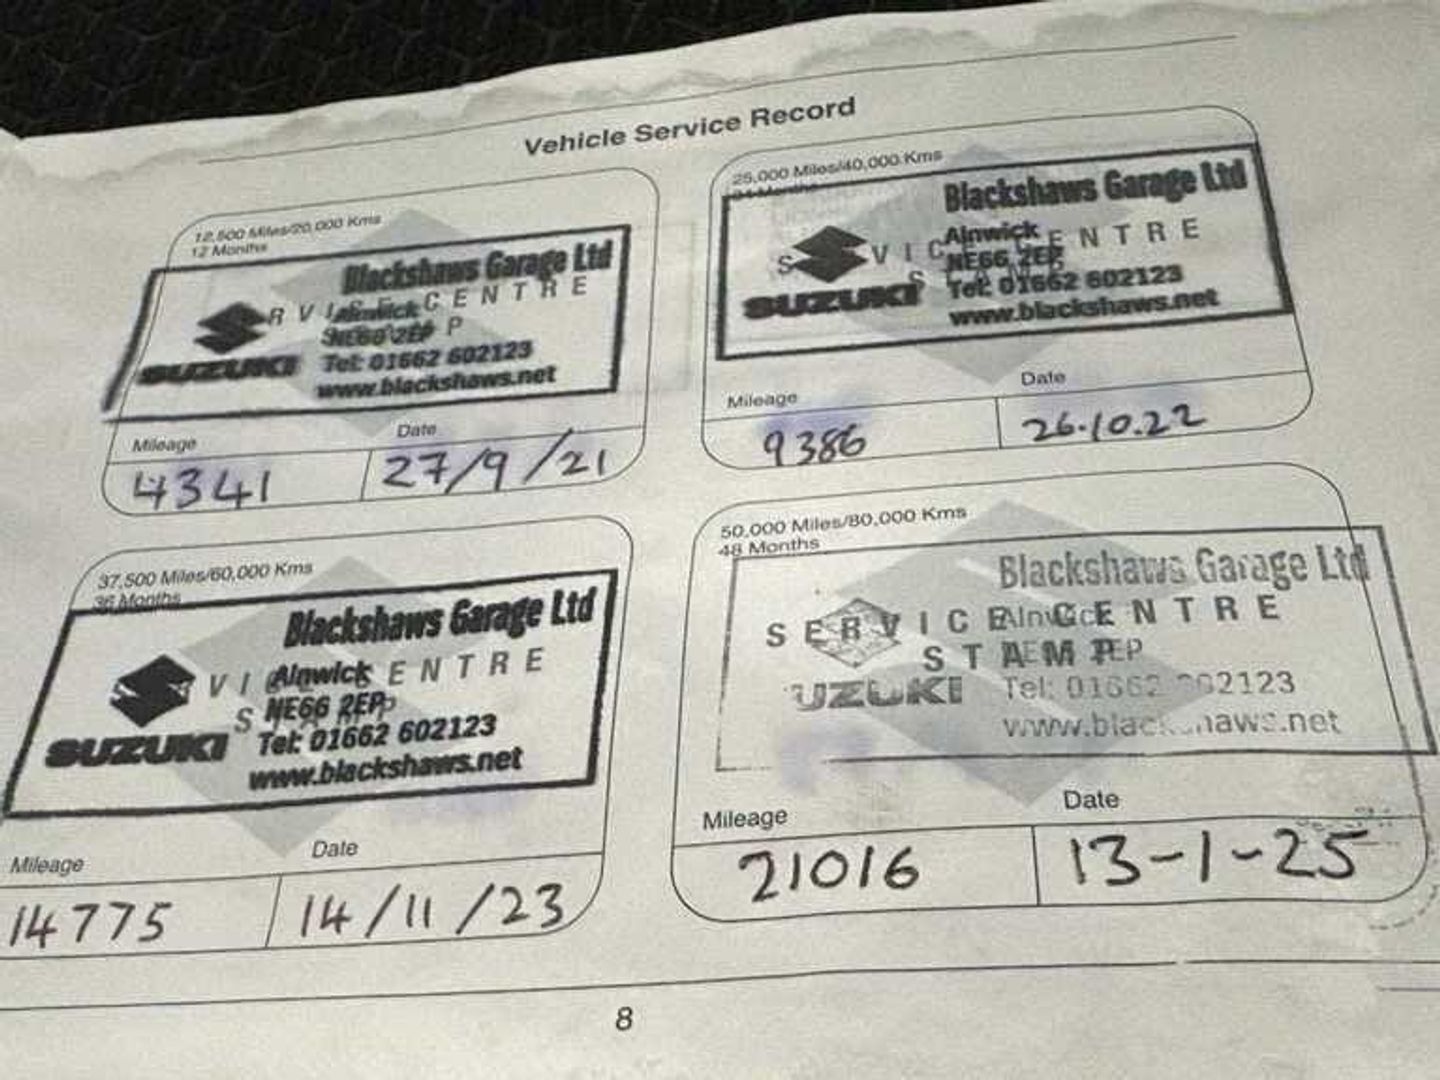 Vehicle Service Record
12,500 Miles/20,000 Kms
12 Months
Blackshaws Garage Ltd
CENTRE
Alnwick
NE66 2EP
SUZUKI
Tel: 01662 602123
www.blackshaws.net
Mileage
Date
4341
27/9/21
25,000 Miles/40,000 Kms
24 Months
Blackshaws Garage Ltd
Alnwick
CENTRE
NE66 2EP
SUZUKI
Tel: 01662 602123
www.blackshaws.net
Mileage
Date
9386
26.10.22
37,500 Miles/60,000 Kms
36 Months
Blackshaws Garage Ltd
Alnwick
CENTRE
NE66 2EP
SUZUKI
Tel: 01662 602123
www.blackshaws.net
Mileage
Date
14775
14/11/23
50,000 Miles/80,000 Kms
48 Months
Blackshaws Garage Ltd
SERVICE CENTRE
Alnwick
STAMP
UZUKI
Tel: 01662 602123
www.blackshaws.net
Mileage
Date
21016
13-1-25
8